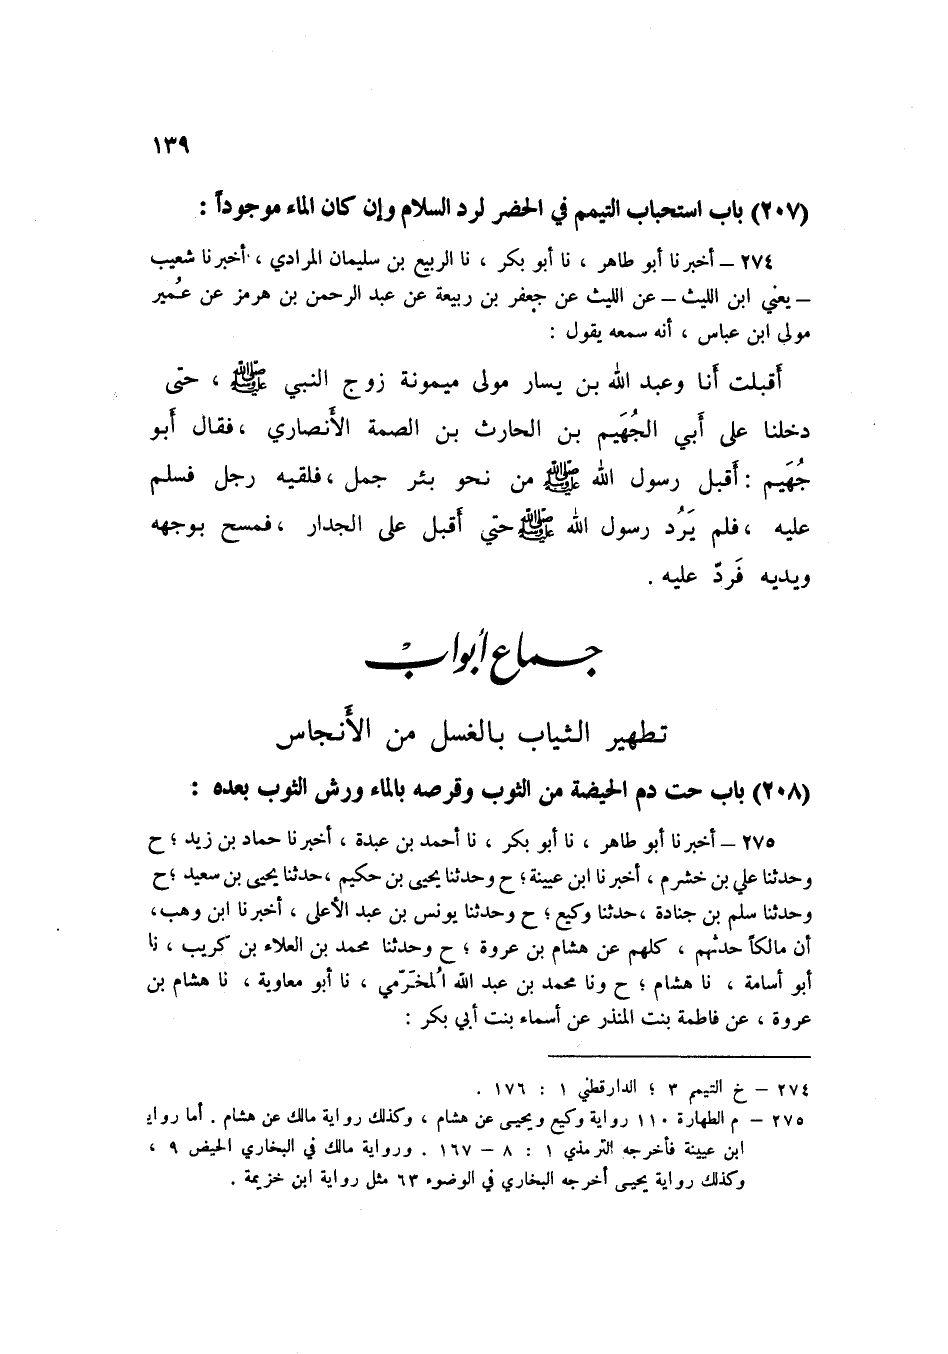 ١٣٩
(٢٠٧) باب استحباب التيمم في الحضر لرد السلام وإن كان الماء موجوداً :
٢٧٤ – أخبرنا أبو طاهر ، نا أبو بكر ، نا الربيع بن سليمان المرادي ، أخبرنا شعيب
– يعني ابن الليث – عن الليث عن جعفر بن ربيعة عن عبد الرحمن بن هرمز عن عُمير
مولى ابن عباس ، أنه سمعه يقول :
أقبلت أنا وعبد الله بن يسار مولى ميمونة زوج النبي ﷺ ، حتى
دخلنا على أبي الجُهَيم بن الحارث بن الصمة الأنصاري ، فقال أبو
جُهَيم : أقبل رسول الله ﷺ من نحو بئر جمل ، فلقيه رجل فسلم
عليه ، فلم يَرُد رسول الله ﷺ حتي أقبل على الجدار ، فمسح بوجهه
ويديه فَردّ عليه .
جماع أبواب
تطهير الثياب بالغسل من الأنجاس
(٢٠٨) باب حت دم الحيضة من الثوب وقرصه بالماء ورش الثوب بعده :
٢٧٥ – أخبرنا أبو طاهر ، نا أبو بكر ، نا أحمد بن عبدة ، أخبرنا حماد بن زيد ؛ ح
وحدثنا علي بن خشرم ، أخبرنا ابن عيينة ؛ ح وحدثنا يحيى بن حكيم ، حدثنا يحيى بن سعيد ؛ ح
وحدثنا سلم بن جنادة ، حدثنا وكيع ؛ ح وحدثنا يونس بن عبد الأعلى ، أخبرنا ابن وهب ،
أن مالكاً حدثهم ، كلهم عن هشام بن عروة ؛ ح وحدثنا محمد بن العلاء بن كريب ، نا
أبو أسامة ، نا هشام ؛ ح ونا محمد بن عبد الله المُخَرّمي ، نا أبو معاوية ، نا هشام بن
عروة ، عن فاطمة بنت المنذر عن أسماء بنت أبي بكر :
٢٧٤ – خ التيمم ٣ ؛ الدارقطني ١ : ١٧٦ .
٢٧٥ – م الطهارة ١١٠ رواية وكيع ويحيى عن هشام ، وكذلك رواية مالك عن هشام . أما رواية
ابن عيينة فأخرجه الترمذي ١ : ٨ – ١٦٧ . ورواية مالك في البخاري الحيض ٩ ،
وكذلك رواية يحيى أخرجه البخاري في الوضوء ٦٣ مثل رواية ابن خزيمة .